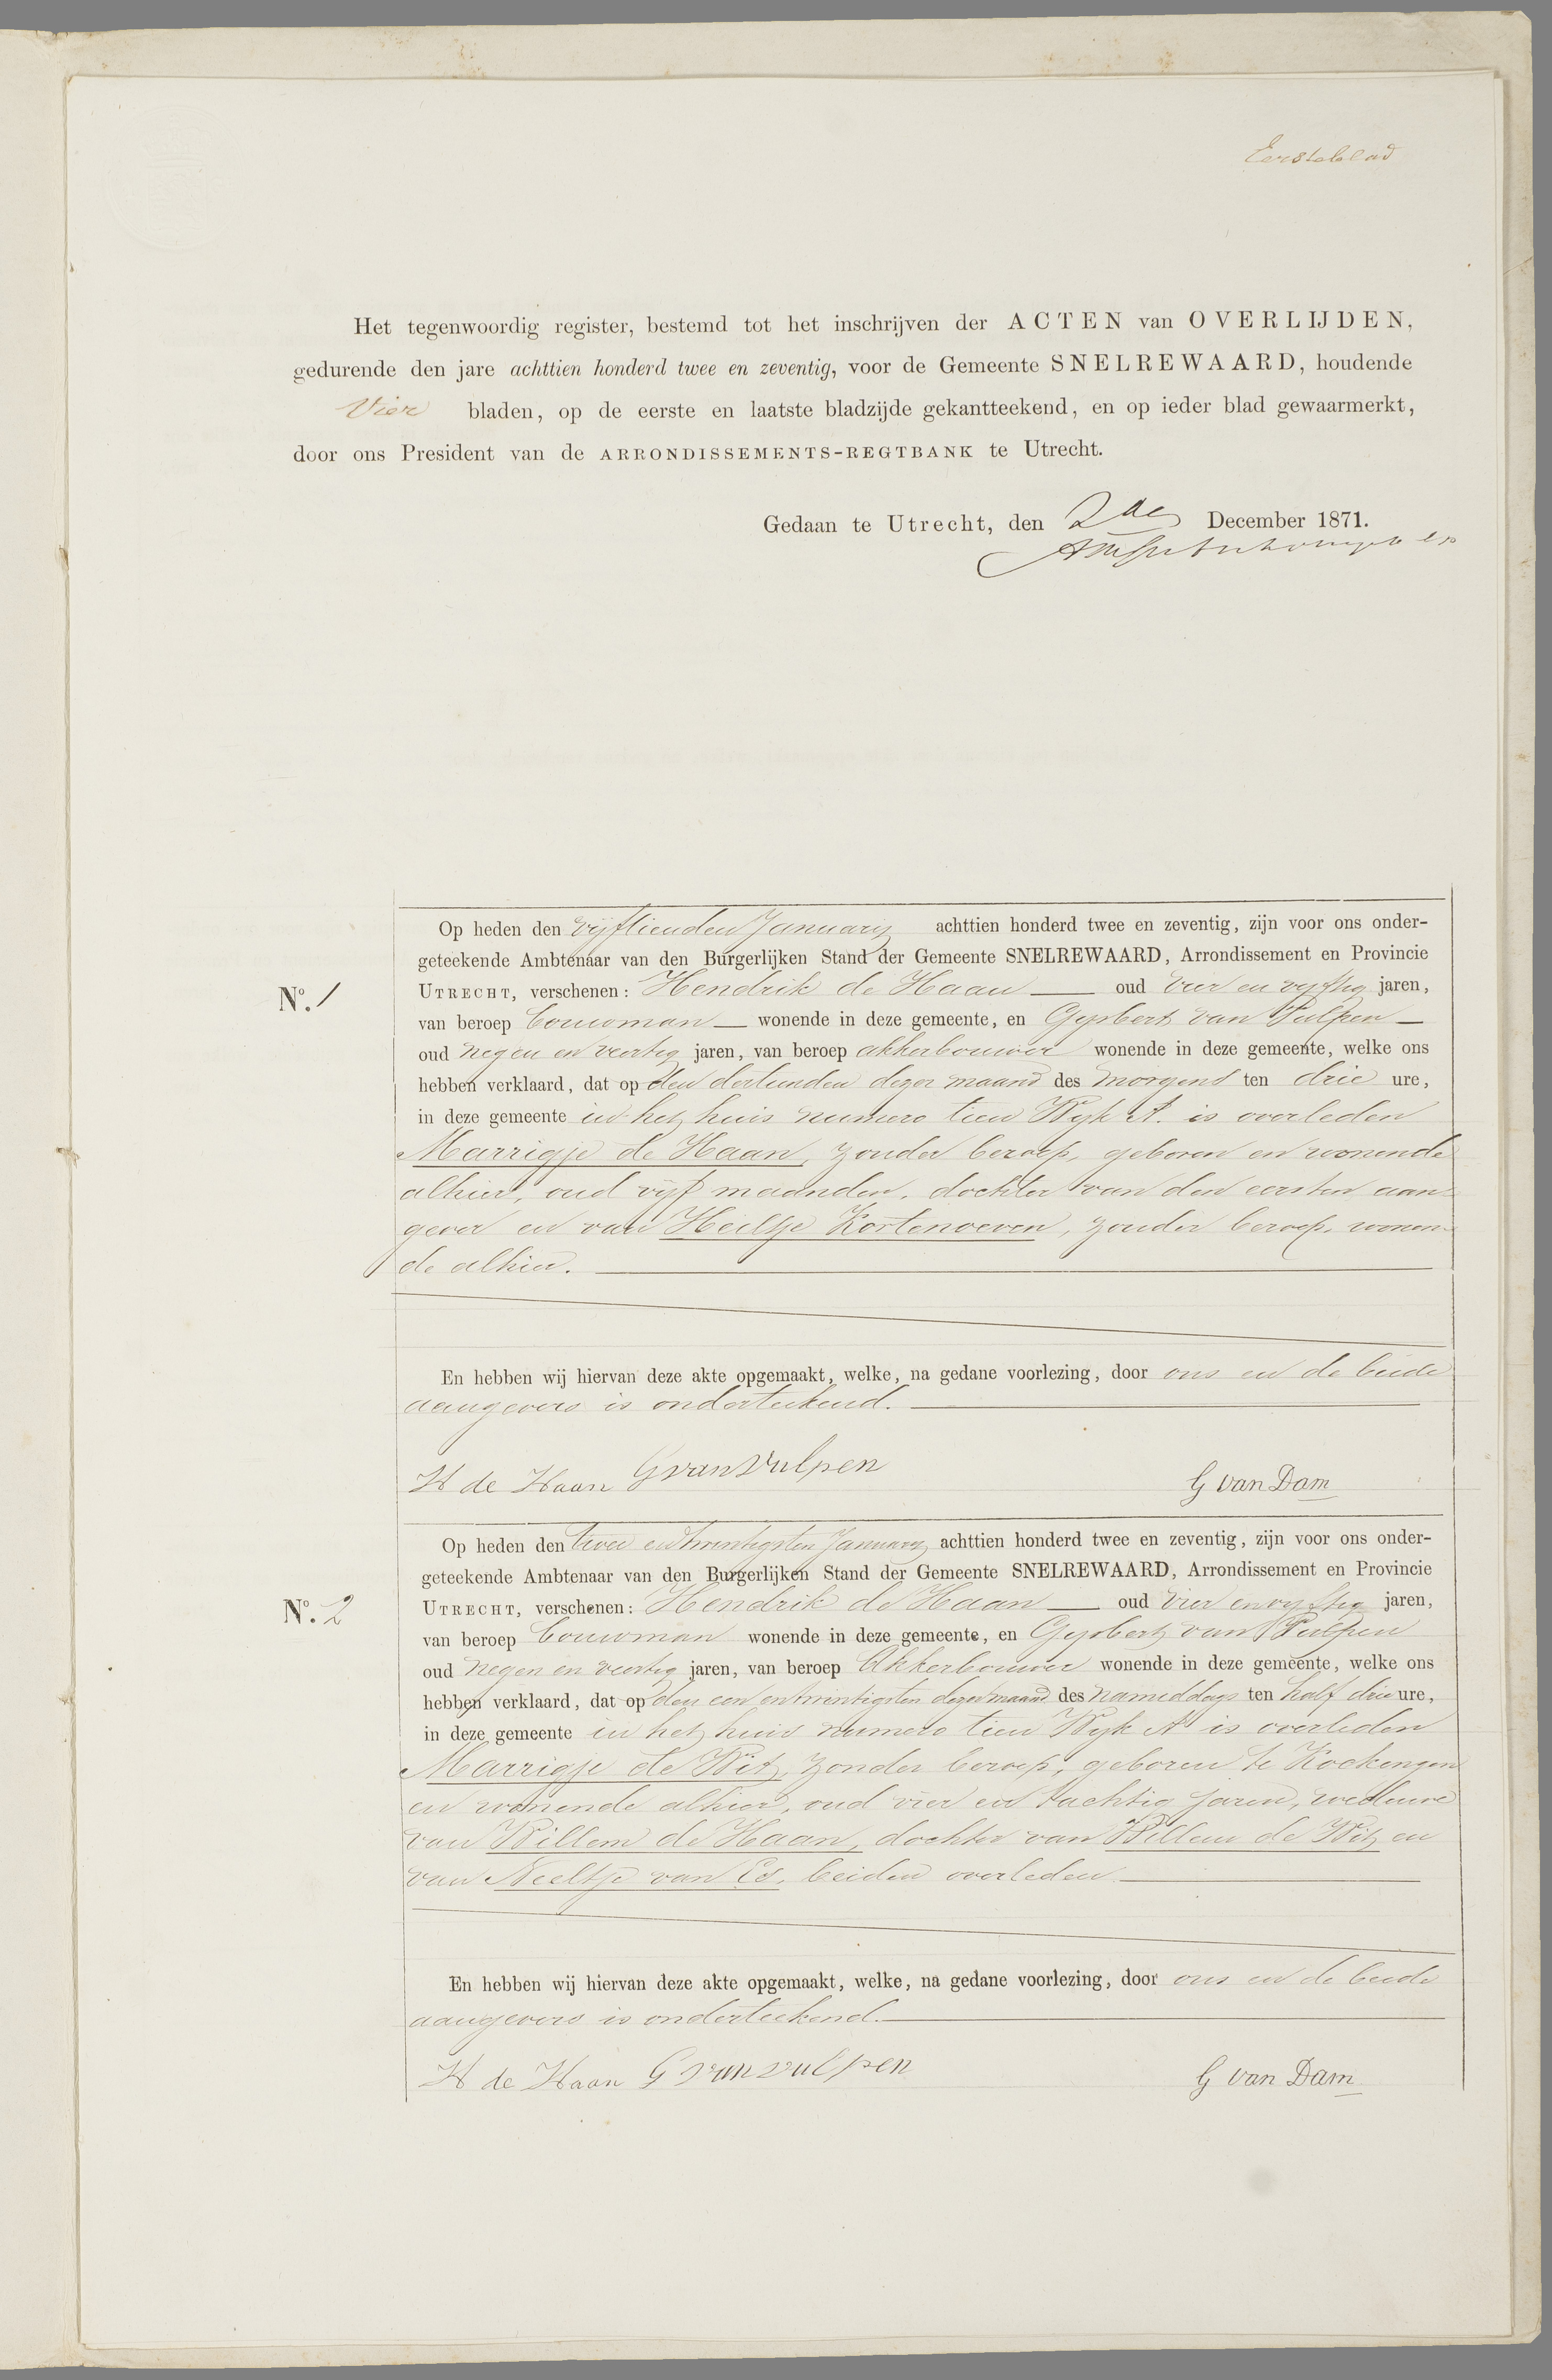 Eerste blad
Het tegenwoordig register, bestemd tot het inschrijven der ACTEN van OVERLIJDEN,
gedurende den jare achttien honderd twee en zeventig, voor de Gemeente SNELREWAARD, houdende
Vier bladen, op de eerste en laatste bladzijde gekantteekend, en op ieder blad gewaarmerkt,
door ons President van de ARRONDISSEMENTS-REGTBANK te Utrecht.
Gedaan te Utrecht, den 2de December 1871.
Op heden den vijftienden Januarij achttien honderd twee en zeventig, zijn voor ons onder-
geteekende Ambtenaar van den Burgerlijken Stand der Gemeente SNELREWAARD, Arrondissement en Provincie
No. 1
UTRECHT, verschenen: Hendrik de Haan — oud vier en vyftig jaren,
van beroep bouwman — wonende in deze gemeente, en Gysbert van Vulpen —
oud negen en veertig jaren, van beroep akkerbouwer wonende in deze gemeente, welke ons
hebben verklaard, dat op den dertienden dezer maand des morgens ten drie ure,
in deze gemeente in het huis numero tien Wyk A. is overleden
Marrigje de Haan, zonder beroep, geboren en wonende
alhier, oud vijf maanden, dochter van den eersten aan-
gever en van Heiltje Kortenoeven, zonder beroep, wonen-
de alhier. —
En hebben wij hiervan deze akte opgemaakt, welke, na gedane voorlezing, door ons en de beide
aangevers is onderteekend. —
H de Haan G van Vulpen G van Dam
Op heden den twee en twintigsten Januarij achttien honderd twee en zeventig, zijn voor ons onder-
geteekende Ambtenaar van den Burgerlijken Stand der Gemeente SNELREWAARD, Arrondissement en Provincie
No. 2
UTRECHT, verschenen: Hendrik de Haan — oud vier en vyftig jaren,
van beroep bouwman wonende in deze gemeente, en Gysbert van Vulpen
oud negen en veertig jaren, van beroep Akkerbouwer wonende in deze gemeente, welke ons
hebben verklaard, dat op den een en twintigsten dezer maand des namiddags ten half drie ure,
in deze gemeente in het huis numero tien Wyk A is overleden
Marrigje de Wit, zonder beroep, geboren te Kockengen
en wonende alhier, oud vier en tachtig jaren, weduwe
van Willem de Haan, dochter van Willem de Wit en
van Neeltje van Es, beiden overleden. —
En hebben wij hiervan deze akte opgemaakt, welke, na gedane voorlezing, door ons en de beide
aangevers is onderteekend. —
H de Haan G van Vulpen G van Dam